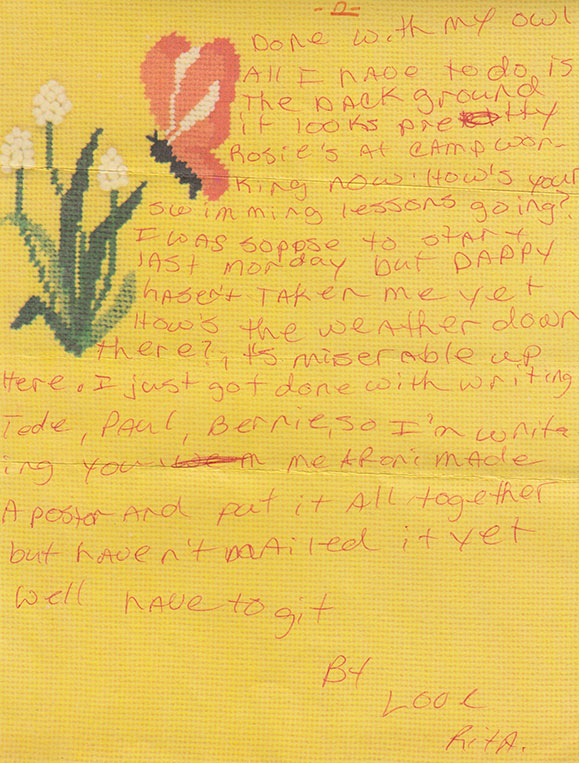 -2-
Done with my owl
All I have to do is
The back ground
it looks pretty
Rosie's at camp wor-
king now. How's your
swimming lessons going?
I was soppose to start
last monday but DADDY
hasen't TAKen me yet
How's the weather down
there?, its miserable up
Here. I just got done with writing
Tede, PAUL, Bernie, so I'm write
ing you me & Roni made
A poster AND put it All together
but haven't mailed it yet
Well have to git
By
Love
Rita.